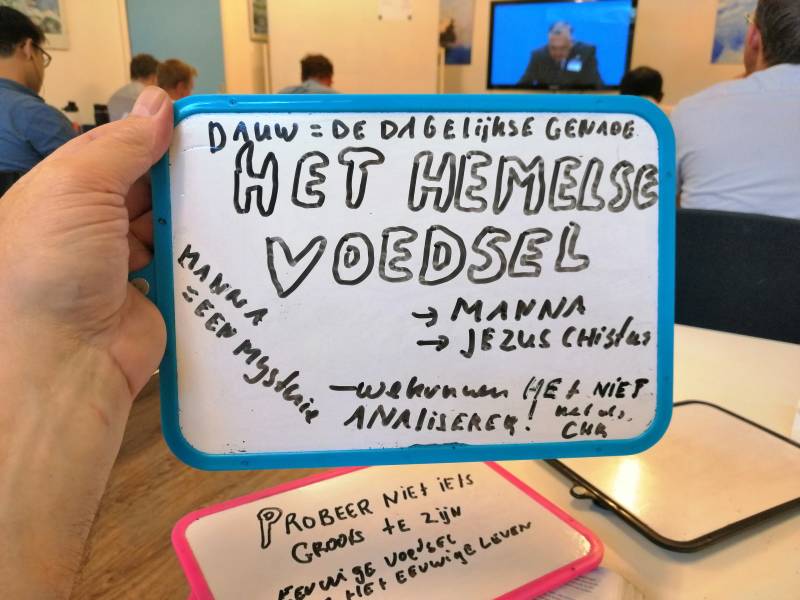 DAUW = DE DAGELIJKSE GENADE
HET HEMELSE
VOEDSEL
MANNA
= EEN MYSTERIE
→ MANNA
→ JEZUS CHistus
– we kunnen HEt NIET
ANALISEREN!
PROBEER NIEt iets
GROOTS tE ZIJN
EEUWIGE VOEDSEL
HET EEUWIGE LEVEN